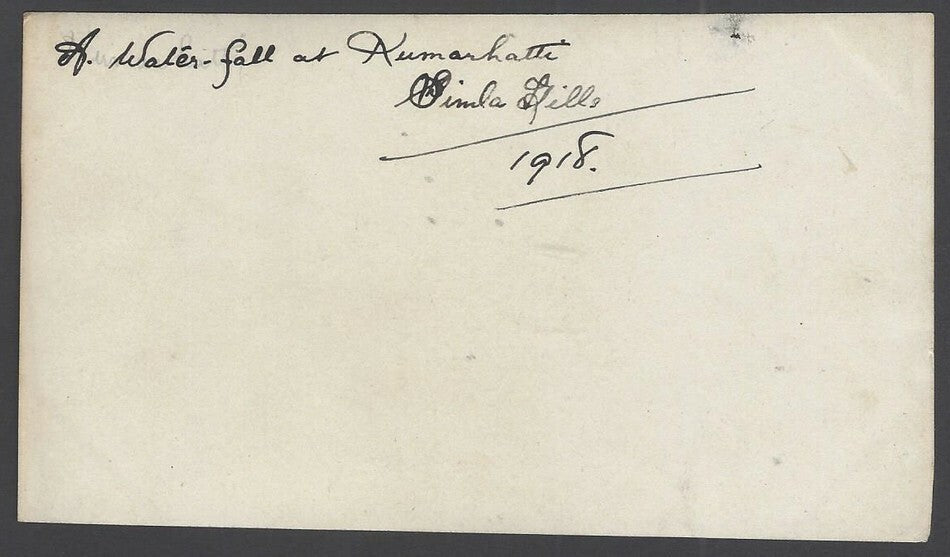 A. Water-fall at Kumarhatti
Simla Hills
1918.